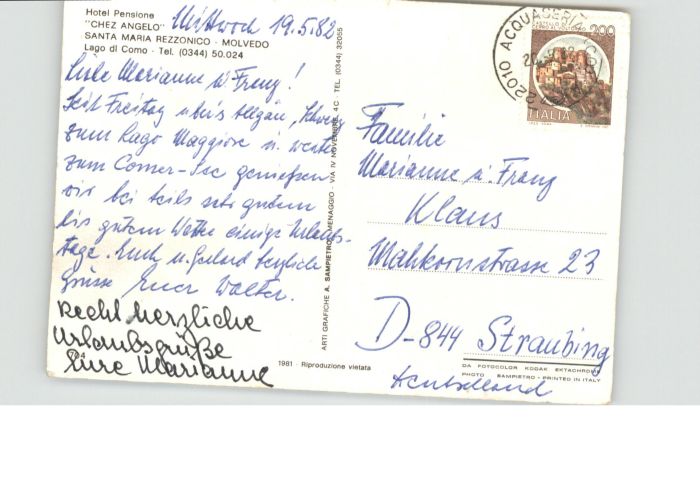 Hotel Pensione
"CHEZ ANGELO"
SANTA MARIA REZZONICO - MOLVEDO
Lago di Como - Tel. (0344) 50.024
Mittwoch 19.5.82
Liebe Marianne u. Franz!
Seit Freitag übers Allgäu, Schweiz
zum Lago Maggiore u. weiter
zum Comer-See genießen
wir bei teils sehr gutem
bis gutem Wetter einige Urlaubs-
tage. Euch u. Gerhard herzliche
Grüsse Euer Walter.
Recht herzliche
Urlaubsgrüße
Eure Marianne
704
ARTI GRAFICHE A. SAMPIETRO - MENAGGIO - VIA IV NOVEMBRE, 4C TEL. (0344) 32055
1981 - Riproduzione vietata
22010 ACQUASERIA (CO)
200
ITALIA
Familie
Marianne u. Franz
Klaus
Mahkornstrasse 23
D-844 Straubing
Deutschland
DA FOTOCOLOR KODAK EKTACHROME
PHOTO SAMPIETRO - PRINTED IN ITALY